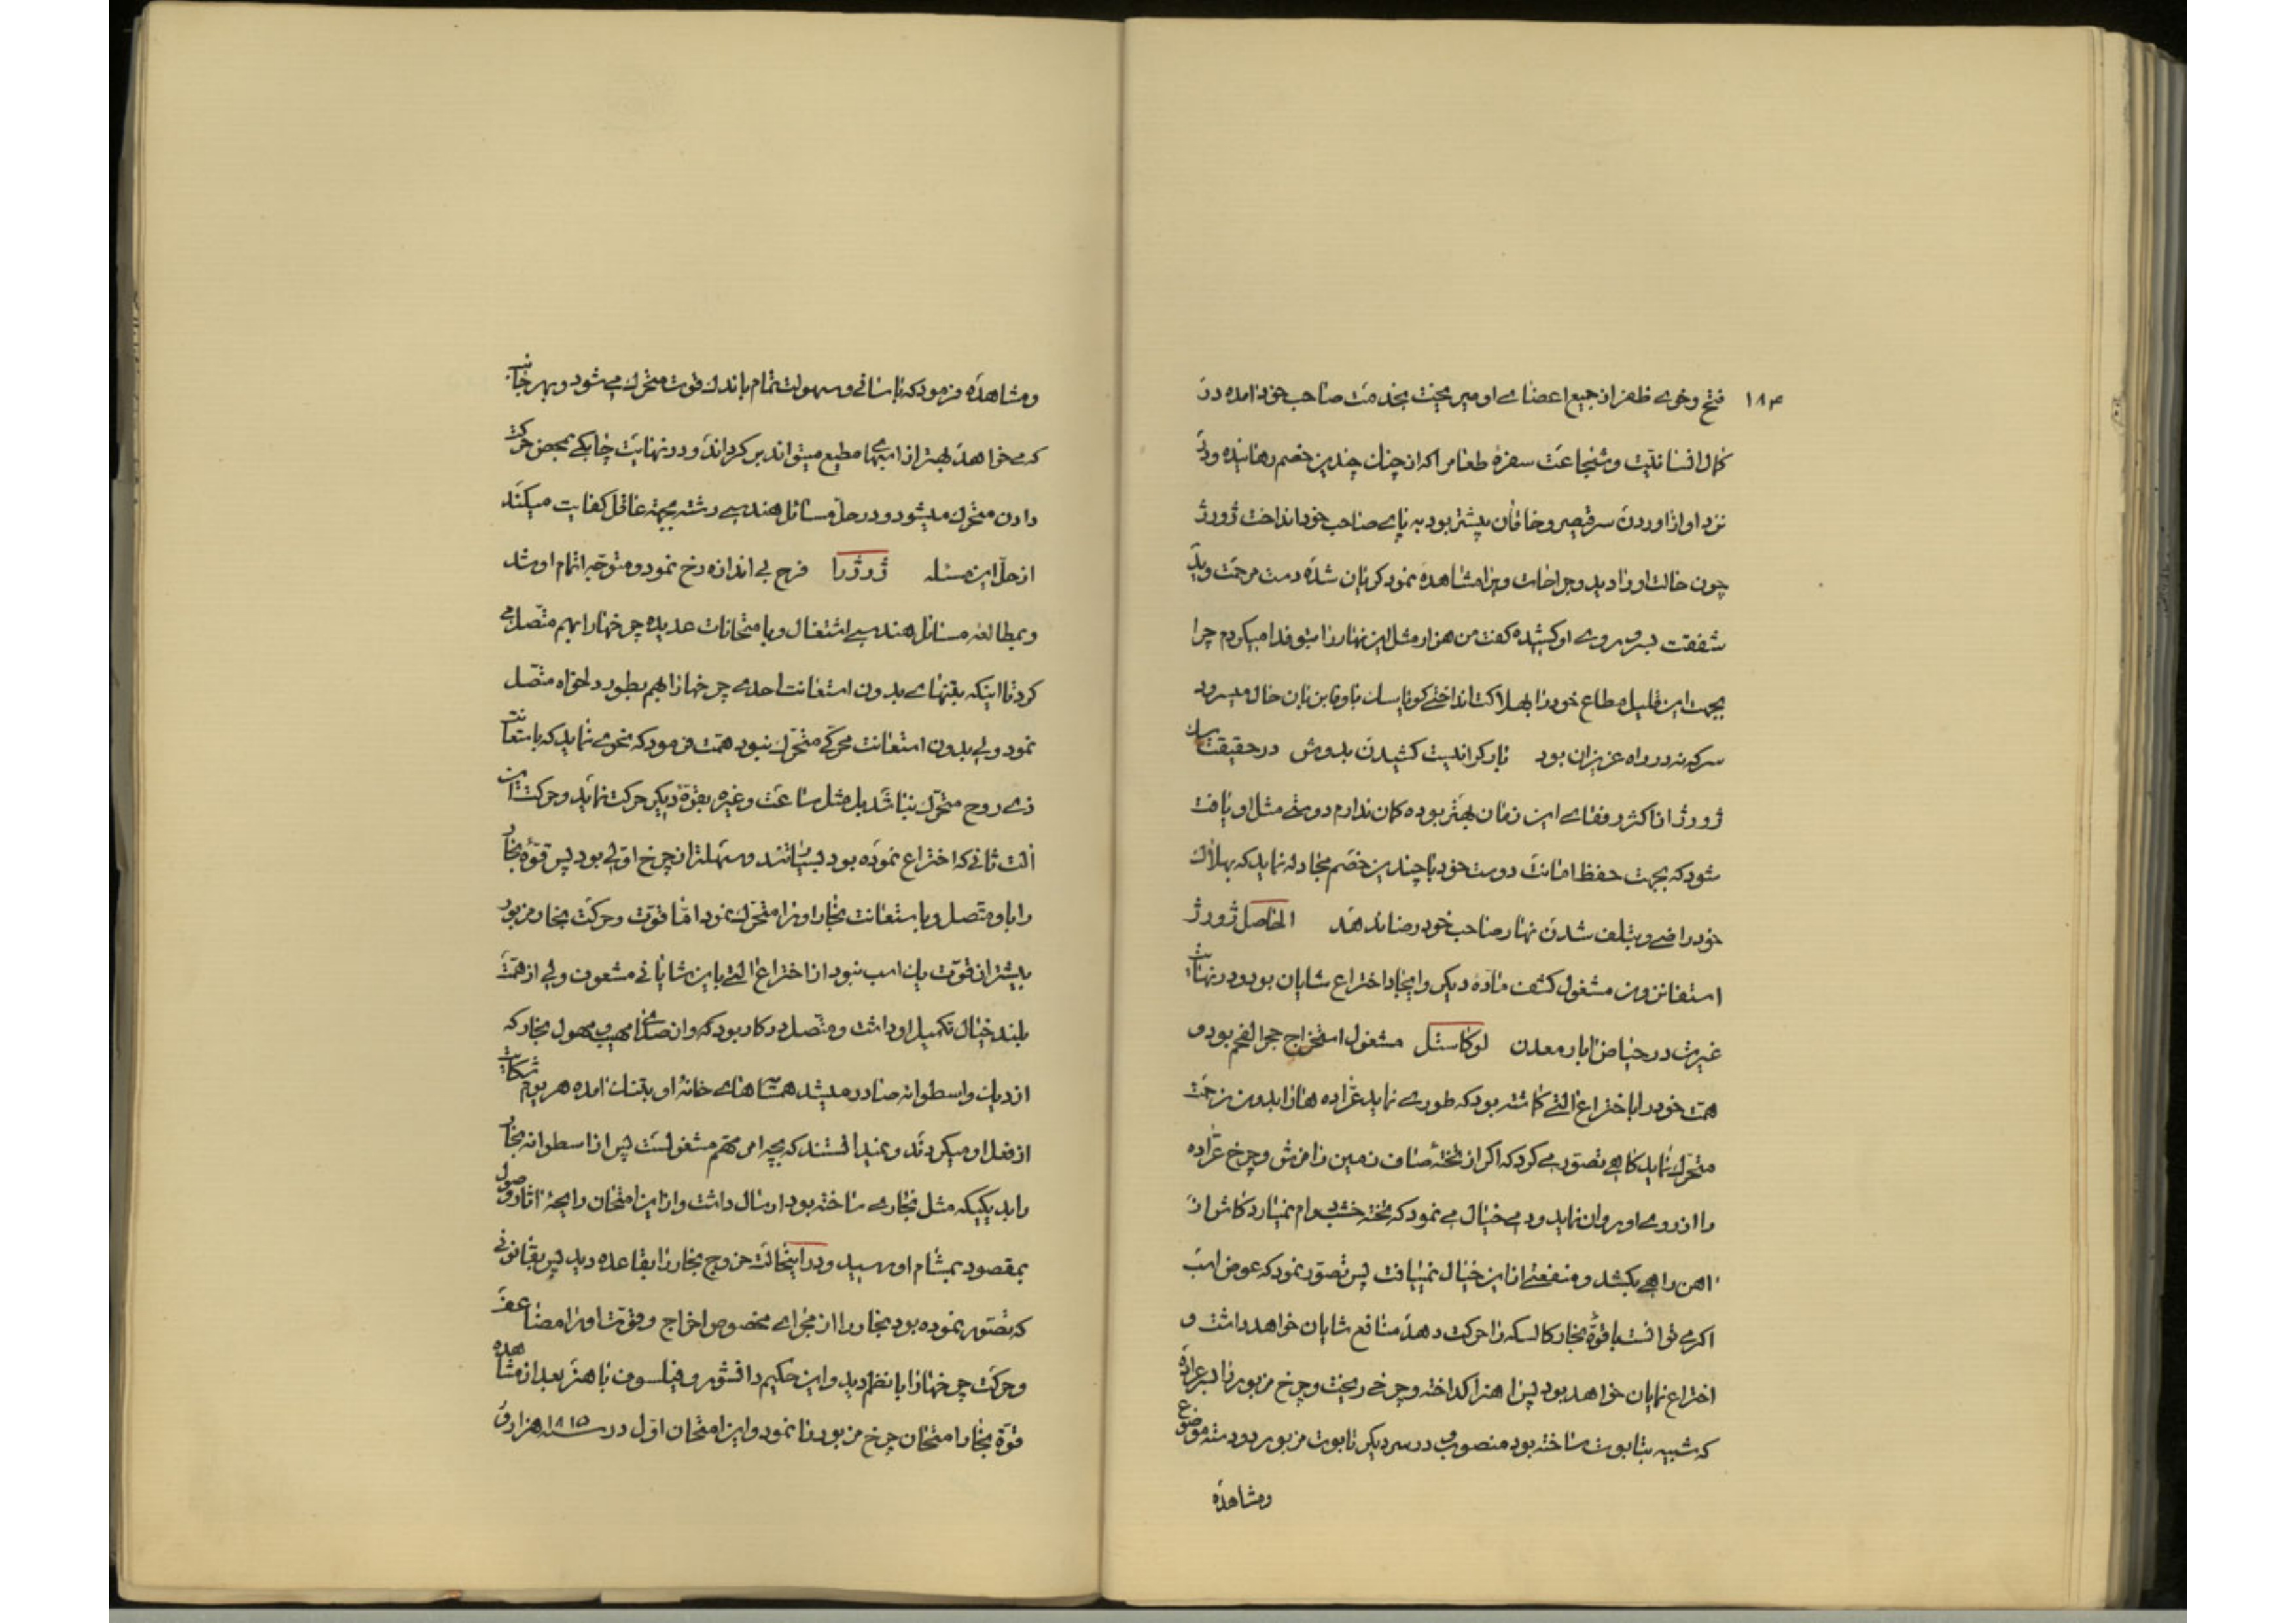 ۱۸۴
فتح و خوی ظفر از جمیع اعضای او میریخت بخدمت صاحب خود امده در
کمال انسانیت و شجاعت سفره طعام را که از چنك چندین خصم رهانیده و در
نزد او از اوردن سر قیصر و خاقان بیشتر بود به پای صاحب خود انداخت ژورژ
چون حالت او را دید و جراحات ویرا مشاهده نمود کریان شده دست مرحمت و ید
شفقت بسر و روی او کشیده کفت من هزار مثل این نهار را بتو فدا میکردم چرا
بجهت این قلیل مطاع خود را بهلاکت انداختی کویا سك باوفا بزبان حال میسرود
سر که نه در راه عزیزان بود بار کرانیست کشیدن بدوش در حقیقت سك
ژورژ از اکثر رفقای این زمان بهتر بوده کمان ندارم دوستی مثل او یافت
شود که بجهت حفظ امانت دوست خود با چندین خصم مجادله نماید که بهلاك
خود راضی و بتلف شدن نهار صاحب خود رضا ندهد الحاصل ژورژ
استفانزون مشغول کشف ماده دیکر و ایجاد اختراع شایان بود و در نهایت
غیرت در حیاض ابار معدن لوکاستل مشغول استخراج حجر الفحم بود و
همت خود را باختراع التی کماشته بود که طوری نماید عراده ها را بدون زحمت
متحرك نماید کاهی تصور می کرد که اکر از تخته صاف زمین را فرش و چرخ عراده
را از روی او روان نماید و می خیال می نمود که تخته خشب دوام نمییارد کاش از
اهن راهی بکشد و منفعتی از این خیال نمییافت پس تصور نمود که عوض اسب
اکر می توانست با قوه بخار کالسکه را حرکت دهد منافع شایان خواهد داشت و
اختراع نمایان خواهد بود پس اهن را کداخته و چرخی ریخت و چرخ مزبور را بر عراده
که شبیه بتابوت ساخته بود منصوب و در سر دیکر تابوت مزبور دود موضوع
ومشاهده
و مشاهده فرمود که باسانی و سهولت تمام باندك قوت متحرك می شود و بهر جانب
که می خواهد بهتر از اسبهای مطیع میتواند بر کرداند و در نهایت چابکی بمحض حرکت
دادن متحرك میشود و در حل مسائل هندسی رشته بجهة عاقل کفایت میکند
از حل این مسئله ژورژ را فرح بی اندازه رخ نمود و متوجه اتمام او شد
و بمطالعه مسائل هندسی اشتغال و بامتحانات عدیده چرخها را بهم متصل می
کرد تا اینکه بتنهای بدون استعانت احدی چرخها را بهم بطور دلخواه متصل
نمود ولی بدون استعانت محرکی متحرك نبود همت فرمود که نحوی نماید که باستعانت
ذی روح متحرك نباشد بل مثل ساعت و غیره بقوة دیکر حرکت نماید و حرکت این
الت ثانی که اختراع نموده بود و سهلتر از چرخ اولی بود پس قوه بخار
را باو متصل و باستعانت بخار او را متحرك نمود اما قوت و حرکت بخار مزبور
بیشتر از قوت یك اسب نبود از اختراع التی باین شایانی مشعوف ولی از همت
بلند خیال تکمیل او داشت و متصل در کار بود که و ان صدای مهیب مهول بخار که
از دیك و اسطوانه صادر میشد همسا‌های خانه او بتنك امده هر یوم شکایت
از فعل او میکردند و نمیدانستند که بچه امر مهم مشغولست پس از اسطوانه بخار
را بدیکیکه مثل بخاری ساخته بود ارسال داشت و از این امتحان رایحه اثار وصول
بمقصود بمشام او رسید و در اینحالت خروج بخار را بقاعده دید پس بقانونی
که تصور نموده بود بخار را از مجرای مخصوص اخراج و قوت او را مضاعف
و حرکت چرخها را با نظم دید و این حکیم دانشور و فیلسوف باهنر بعد از مشاهده
قوة بخار امتحان چرخ مزبور را نمود و این امتحان اول در سنه ۱۸۱۵ هزار و